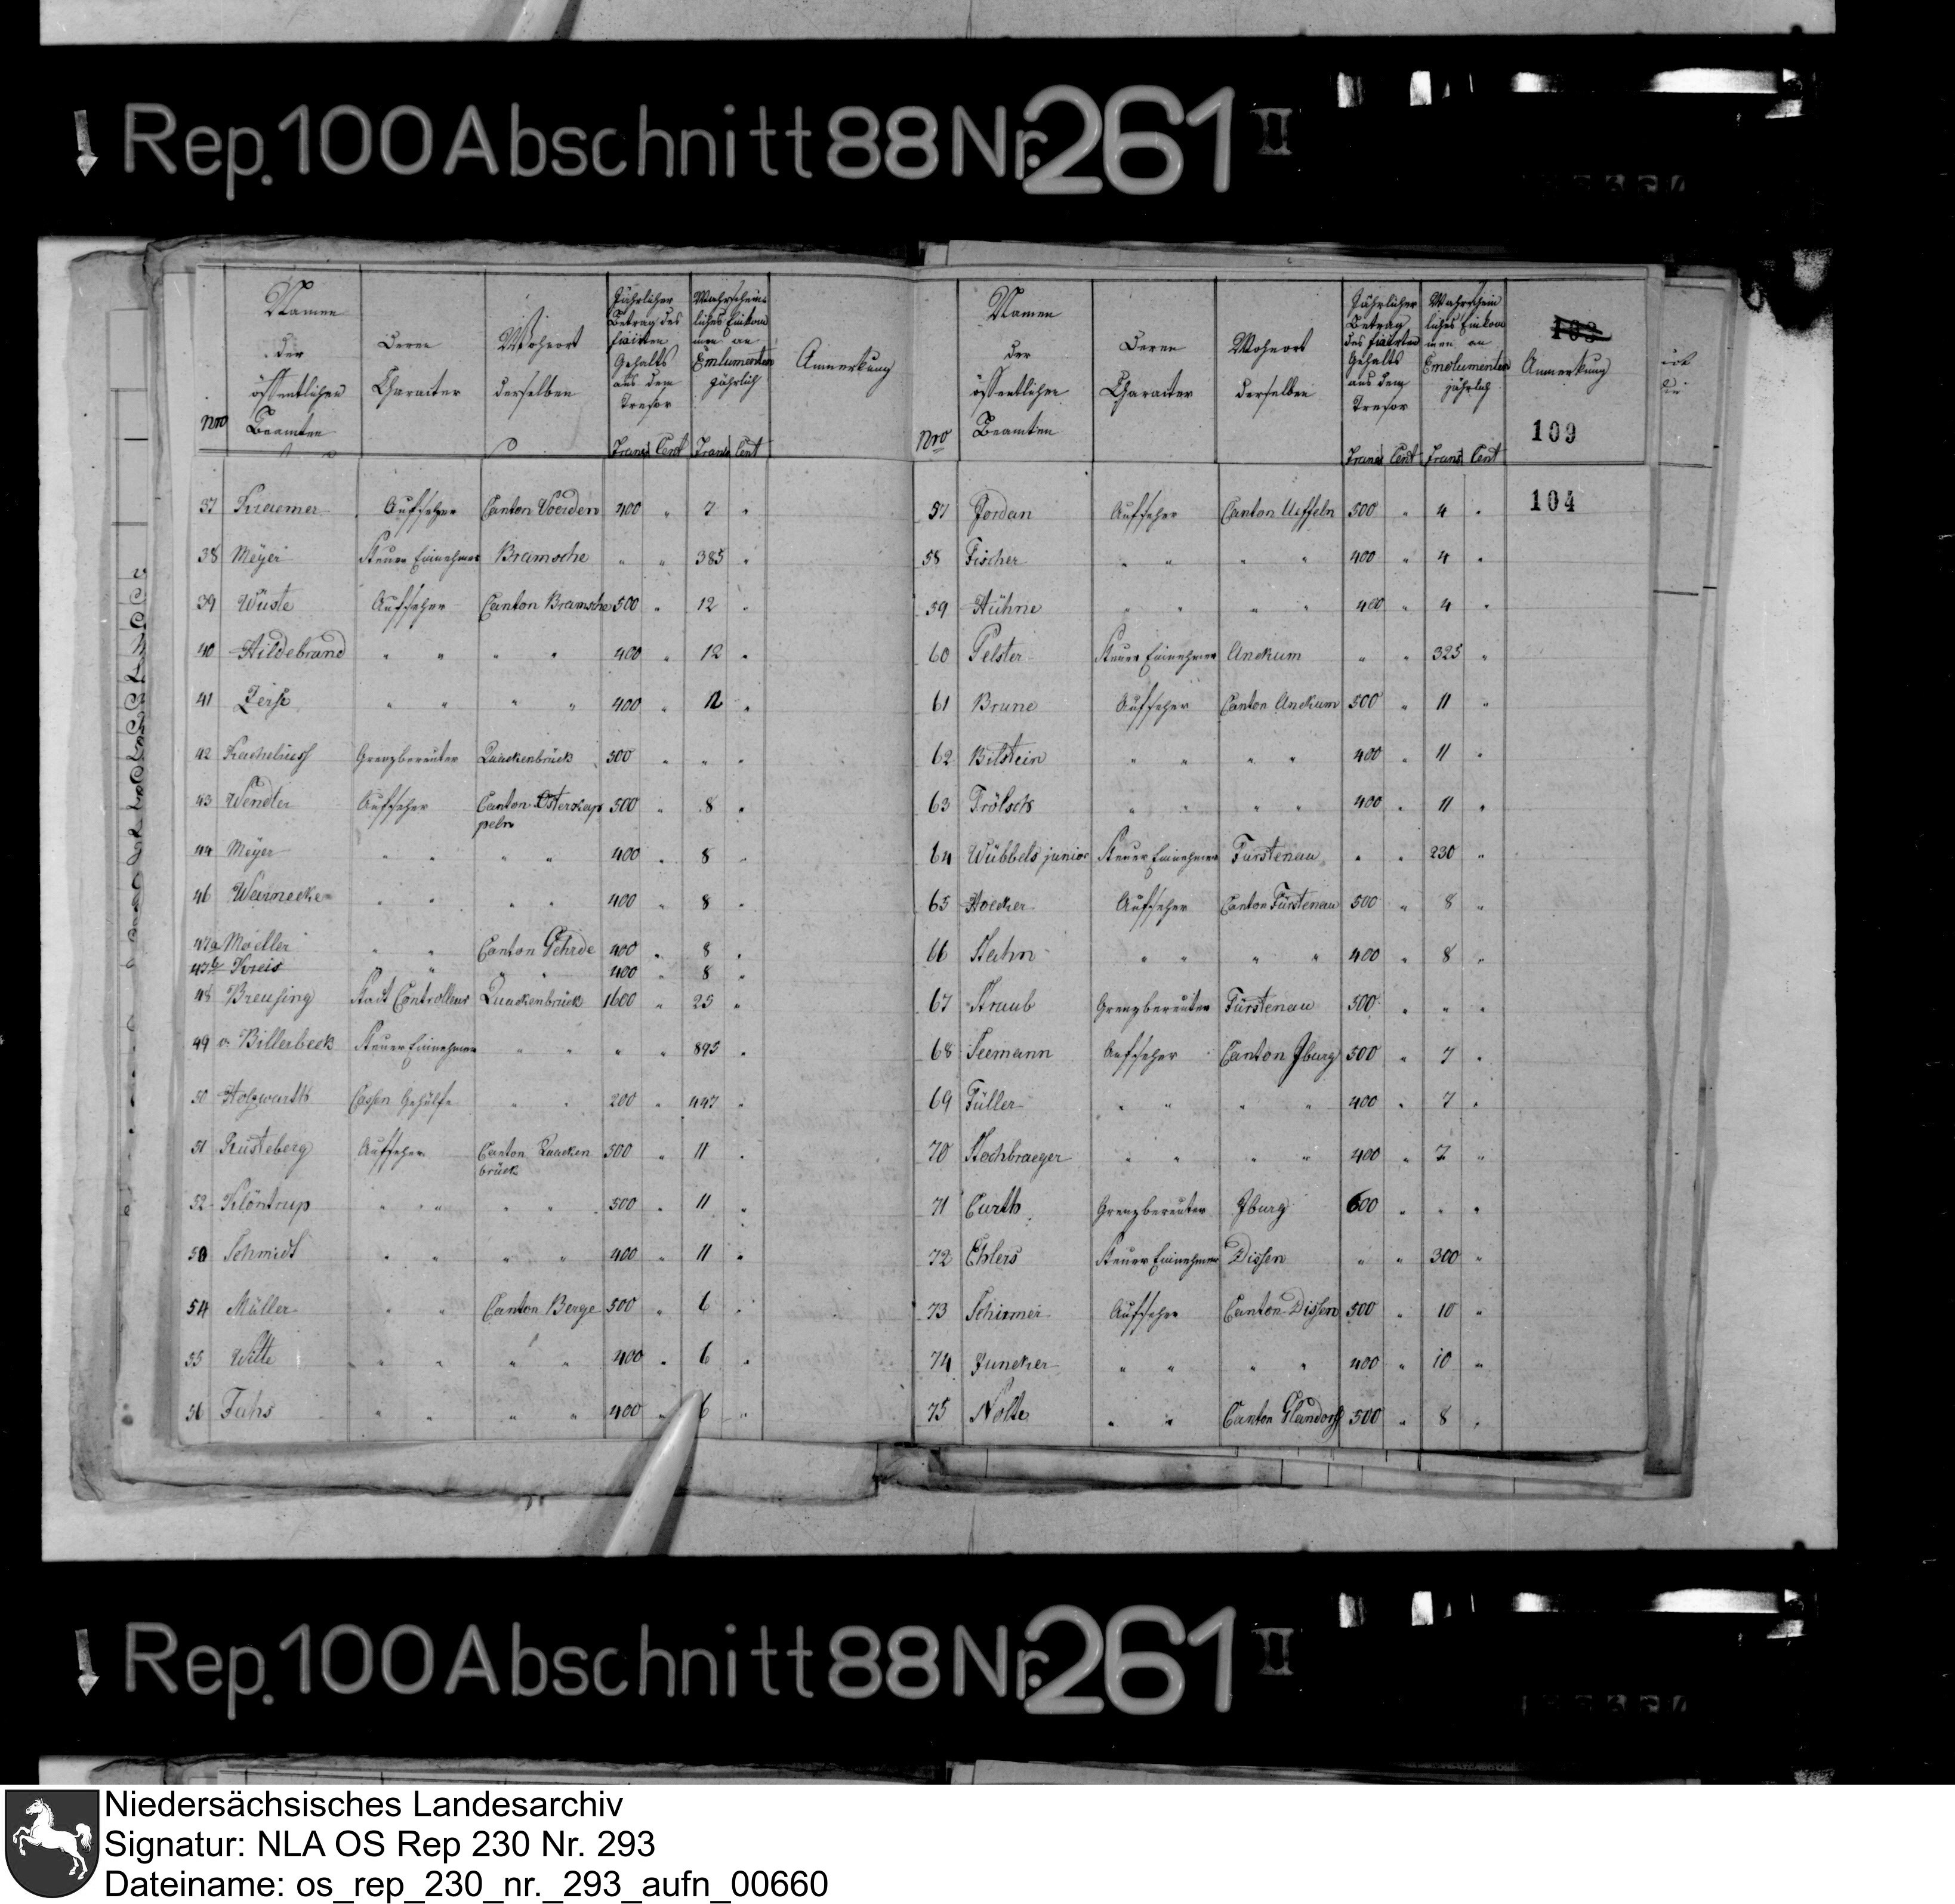 Rep. 100 Abschnitt 88 Nr. 261 II
Nro Namen der öffentlichen Beamten Deren Charakter Wohnort derselben Jährlicher Betrag des fixirten Gehalts aus dem Tresor Wahrscheinliches Einkommen an Emlumenten jährlich Anmerkung
Francs Cent Francs Cent
37 Kraemer Aufseher Canton Voerden 400 " 7 "
38 Meyer Steuer Einnehmer Bramsche " " 385 "
39 Wüste Aufseher Canton Bramsche 500 " 12 "
40 Hildebrand " " " " 400 " 12 "
41 " " " " 400 " 12 "
42 Grenzbereuter Quackenbrück 500 " " "
43 Wendter Aufseher Canton Osterkap 500 " 8 "
peln
44 Meyer " " " " 400 " 8 "
46 Warnecke " " " " 400 " 8 "
47a Moeller " " Canton Gehrde 400 " 8 "
47b Kreis " " " 400 " 8 "
48 Breusing Stadt Controlleur Quackenbrück 1600 " 25 "
49 v. Billerbeck Steuer Einnehmer " " " " 895 "
50 Holzwarth Cassen Gehülfe " " 200 " 447 "
51 Rusteberg Aufseher Canton Quacken 500 " 11 "
brück
52 Klöntrup " " " " 500 " 11 "
53 Schmidt " " " " 400 " 11 "
54 Müller " " Canton Berge 500 " 6 "
55 Witte " " " " 400 " 6 "
56 Fuhs " " " " 400 " 6 "
Nro Namen der öffentlichen Beamten Deren Charakter Wohnort derselben Jährlicher Betrag des fixirten Gehalts aus dem Tresor Wahrscheinliches Einkommen an Emolumenten jährlich Anmerkung
Francs Cent Francs Cent
109
104
57 Jordan Aufseher Canton Ueffeln 500 " 4 "
58 Fischer " " " " 400 " 4 "
59 Hühne " " " " 400 " 4 "
60 Pelster Steuer Einnehmer Anckum " " 325 "
61 Brune Aufseher Canton Anckum 500 " 11 "
62 Bilstein " " " " 400 " 11 "
63 Trölsch " " " " 400 " 11 "
64 Wübbels junior Steuer Einnehmer Fürstenau " " 230 "
65 Hoecker Aufseher Canton Fürstenau 500 " 8 "
66 Hahn " " " " 400 " 8 "
67 Straub Grenzbereuter Fürstenau 500 " " "
68 Seemann Aufseher Canton Iburg 500 " 7 "
69 Füller " " " " 400 " 7 "
70 Stechbraeger " " " " 400 " 7 "
71 Curth Grenzbereuter Iburg 600 " " "
72 Ehlers Steuer Einnehmer Dissen " " 300 "
73 Schirmer Aufseher Canton Dissen 500 " 10 "
74 Juncker " " " " 400 " 10 "
75 Nolte " " Canton Glandorff 500 " 8 "
Rep. 100 Abschnitt 88 Nr. 261 II
Niedersächsisches Landesarchiv
Signatur: NLA OS Rep 230 Nr. 293
Dateiname: os_rep_230_nr._293_aufn_00660